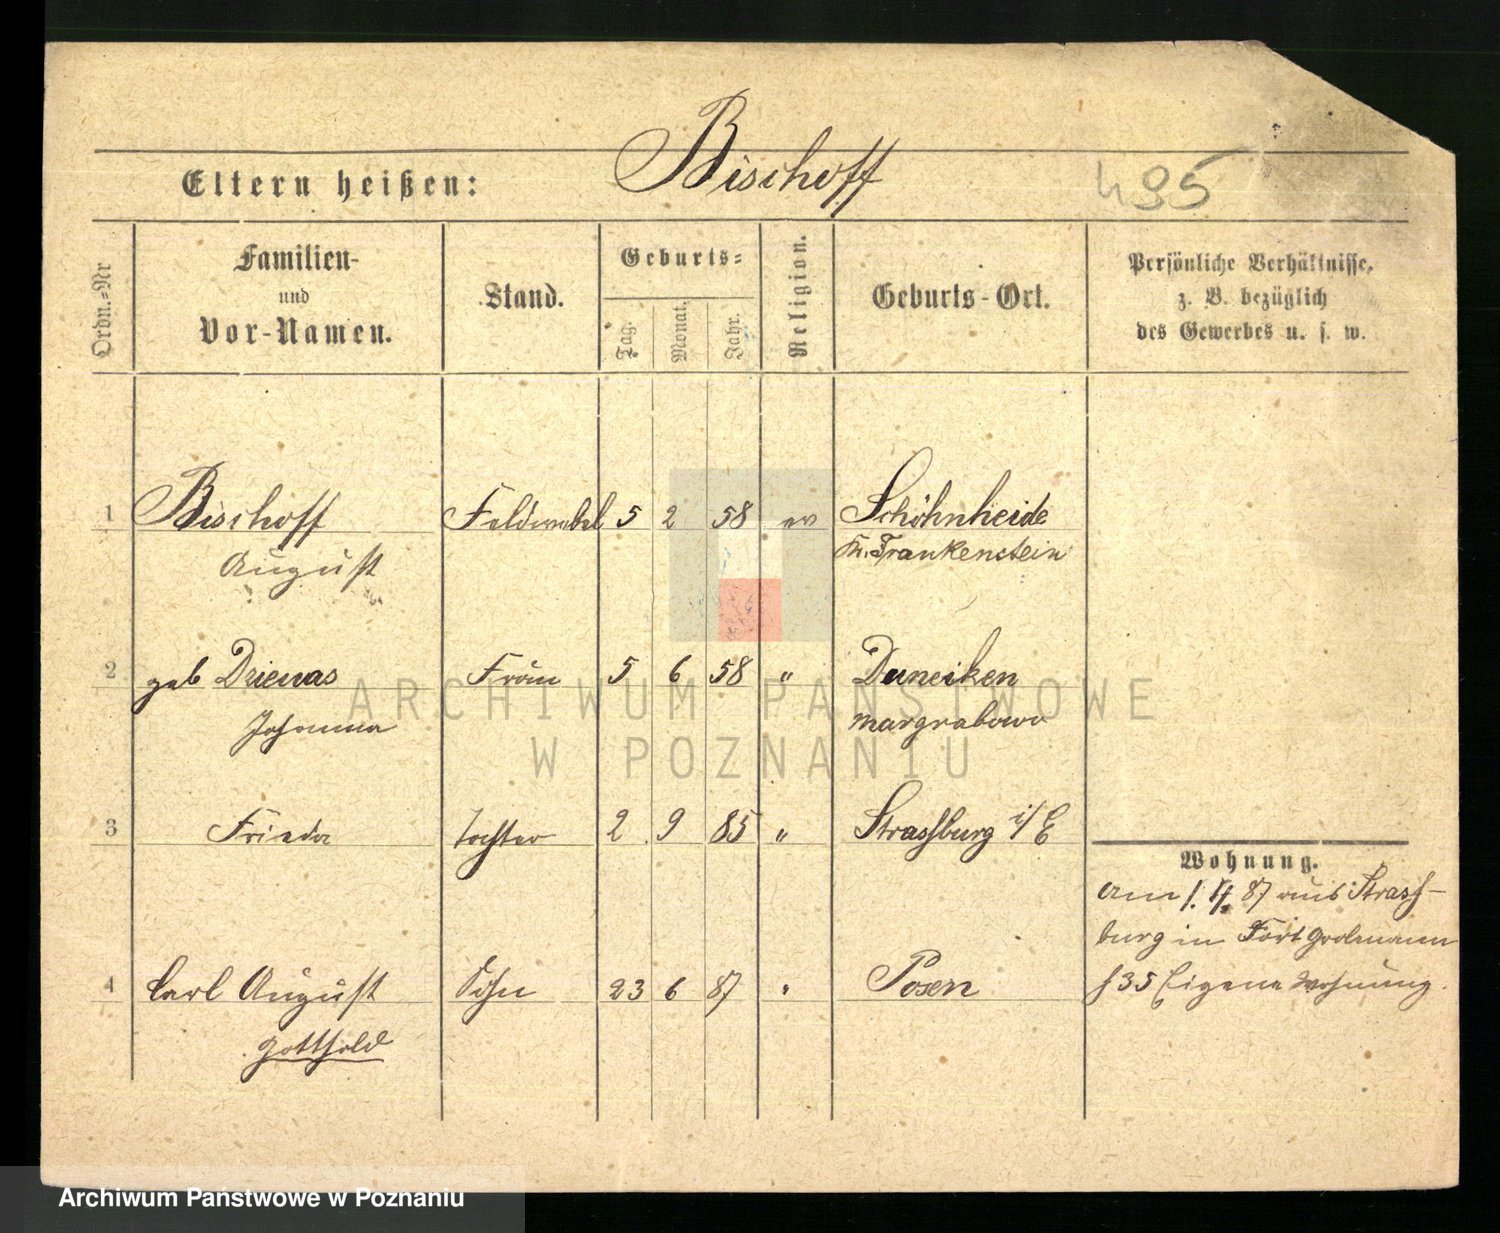 Bischoff
Eltern heißen:
495
Ordn.=Nr
Familien-
und
Vor-Namen.
Stand.
Geburts=
Tag.
Monat.
Jahr.
Religion.
Geburts-Ort.
Persönliche Verhältnisse,
z. B. bezüglich
des Gewerbes u. s. w.
1 Bischoff Feldwebel 5 2 58 ev Schöhnheide
August Kr. Frankenstein
2 geb Drienas Frau 5 6 58 " Duneiken
Johanna Margrabowo
3 Frieda Tochter 2 9 85 " Strassburg i/E
Wohnung.
am 1. 4. 87 aus Strass-
burg in Fort Grolmann
4 Carl August Sohn 23 6 87 " Posen
§35 Eigene Wohnung.
Gotthold
ARCHIWUM PAŃSTWOWE
W POZNANIU
Archiwum Państwowe w Poznaniu